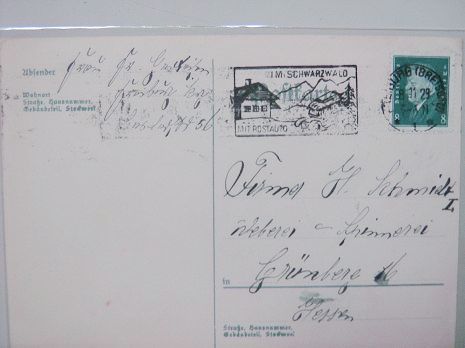 Absender
Wohnort
Straße, Hausnummer,
Gebäudeteil, Stockwerk
Frau Fr.
Freiburg
56
Postkarte
I.M. SCHWARZWALD
MIT POSTAUTO
BURG (BREISGAU)
11.29
8 8
Firma H. Schmidt
Weberei u Spinnerei
in
Grünberg
I
Hessen
Straße, Hausnummer,
Gebäudeteil, Stockwerk